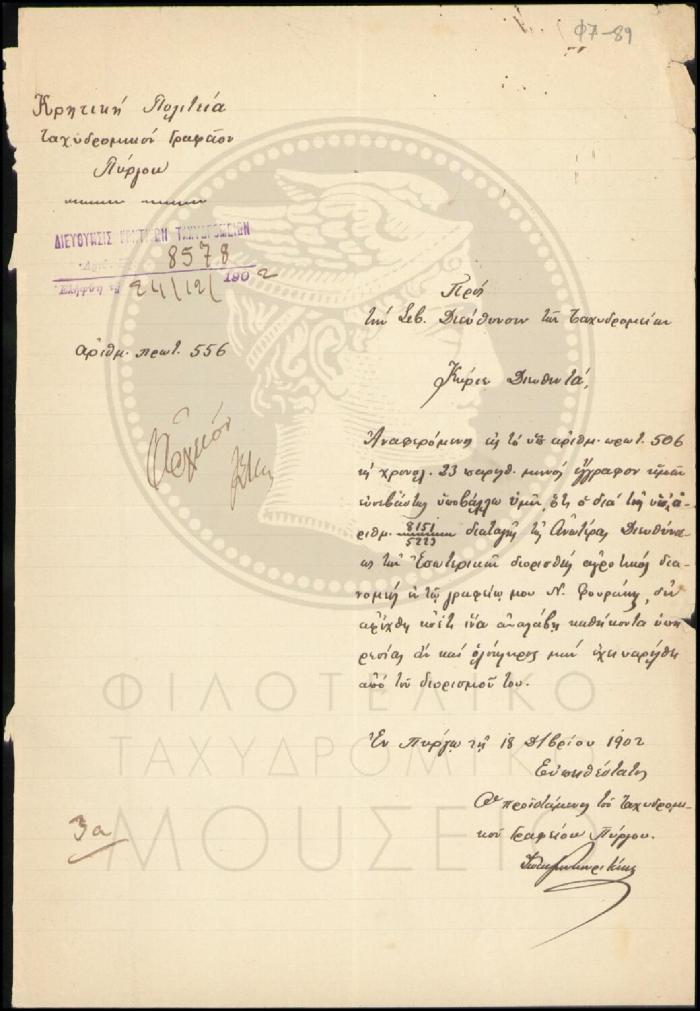 Φ7-89
Κρητική Πολιτεία
Ταχυδρομικόν Γραφεῖον
Πύργου
ΔΙΕΥΘΥΝΣΙΣ ΚΡΗΤΙΚΩΝ ΤΑΧΥΔΡΟΜΕΙΩΝ
8578
24/12/ 1902
ἀριθμ. πρωτ. 556
Πρός
τὴν Σεβ. Διεύθυνσιν τῶν Ταχυδρομείων
Κύριε Διευθυντά,
Ἀναφερόμενος εἰς τὸ ὑπ' ἀριθμ. πρωτ. 506
καὶ χρονολ. 23 παρελθ. μηνός ἔγγραφον
εὐσεβάστως ὑποβάλλω ὑμῖν, ὅτι ὁ διὰ τῆς ὑπ' ἀ-
ριθμ. 8151/5223 διαταγῆς τῆς Ἀνωτέρας Διευθύνσε-
ως τῶν Ἐσωτερικῶν διορισθείς ἀγροτικός δια-
νομεύς ἐν τῷ γραφείῳ μου Ν. Φουράκης, δὲν
ἀφίχθη ἵνα ἀναλάβῃ καθήκοντα ὑπη-
ρεσίας ἂν καὶ ὁλόκληρος μήν ἔχει παρέλθει
ἀπό τοῦ διορισμοῦ του.
Ἐν Πύργῳ τῇ 18 Δ/βρίου 1902
Εὐπειθέστατος
Ὁ προϊστάμενος τοῦ ταχυδρομι-
κοῦ Γραφείου Πύργου.
3α
ΦΙΛΟΤΕΛΙΚΟ
ΤΑΧΥΔΡΟΜΙΚΟ
ΜΟΥΣΕΙΟ